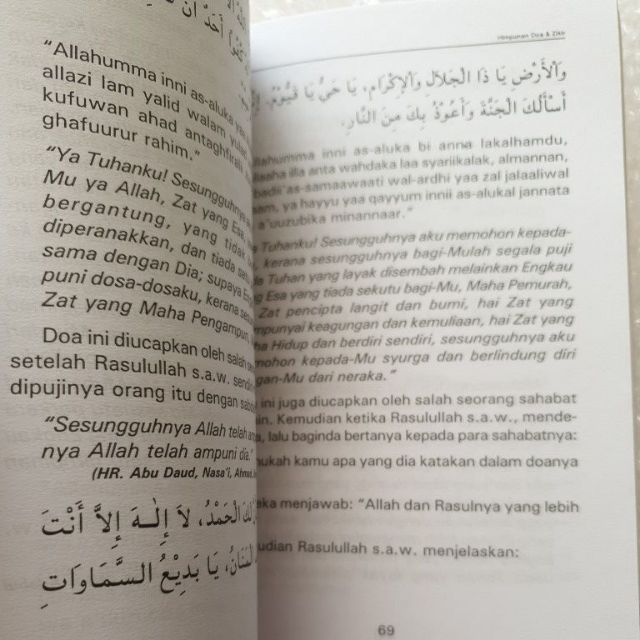 كُفُوًا أَحَدٌ أَنْ
"Allahumma inni as-aluka
allazi lam yalid walam
kufuwan ahad antaghfirali
ghafuurur rahim."
"Ya Tuhanku! Sesungguhnya
Mu ya Allah, Zat yang Esa,
bergantung, yang tidak
diperanakkan, dan tiada
sama dengan Dia; supaya
puni dosa-dosaku, kerana
Zat yang Maha Pengampun
Doa ini diucapkan oleh salah
setelah Rasulullah s.a.w.
dipujinya orang itu dengan
"Sesungguhnya Allah telah
nya Allah telah ampuni dia."
(HR. Abu Daud, Nasa'i, Ahmad,
لَكَ الْحَمْدُ، لَا إِلٰهَ إِلَّا أَنْتَ
الْمَنَّانُ، يَا بَدِيْعُ السَّمَاوَاتِ
Himpunan Doa & Zikir
وَالْأَرْضِ يَا ذَا الْجَلَالِ وَالْإِكْرَامِ، يَا حَيُّ يَا قَيُّوْمُ،
أَسْأَلُكَ الْجَنَّةَ وَأَعُوْذُ بِكَ مِنَ النَّارِ.
allahumma inni as-aluka bi anna lakalhamdu,
ilaaha illa anta wahdaka laa syariikalak, almannan,
badii'as-samaawaati wal-ardhi yaa zal jalaaliwal
ya hayyu yaa qayyum innii as-alukal jannata
a'uuzubika minannaar."
Tuhanku! Sesungguhnya aku memohon kepada-
kerana sesungguhnya bagi-Mulah segala puji
Tuhan yang layak disembah melainkan Engkau
Esa yang tiada sekutu bagi-Mu, Maha Pemurah,
Zat pencipta langit dan bumi, hai Zat yang
mpunyai keagungan dan kemuliaan, hai Zat yang
Hidup dan berdiri sendiri, sesungguhnya aku
mohon kepada-Mu syurga dan berlindung diri
gan-Mu dari neraka."
ini juga diucapkan oleh salah seorang sahabat
Kemudian ketika Rasulullah s.a.w., mende-
lalu baginda bertanya kepada para sahabatnya:
hukah kamu apa yang dia katakan dalam doanya
eka menjawab: "Allah dan Rasulnya yang lebih
udian Rasulullah s.a.w. menjelaskan:
69